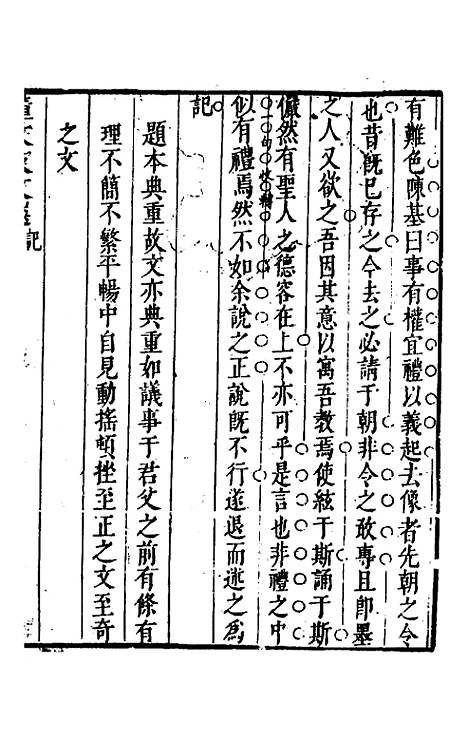 有難色陳基曰事有權宜禮以義起去像者先朝之令
也昔既已存之今去之必請于朝非令之敢專且卽墨
之人又欲之吾因其意以寓吾教焉使絃于斯誦于斯
儼然有聖人之德容在上不亦可乎是言也非禮之中
似有禮焉然不如余說之正說既不行遂退而述之爲
記
題本典重故文亦典重如議事于君父之前有條有
理不簡不繁平暢中自見動搖頓挫至正之文至奇
之文